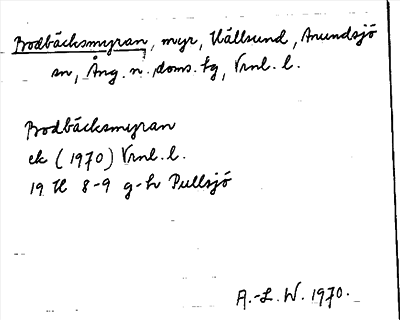 Bodbäcksmyran, myr, Källsund, Anundsjö
sn, Ång. n. doms. tg, Vrnl. l.
Bodbäcksmyran
ek (1970) Vrnl. l.
19 H 8-9 g-h Pullsjö
A.-L. W. 1970.